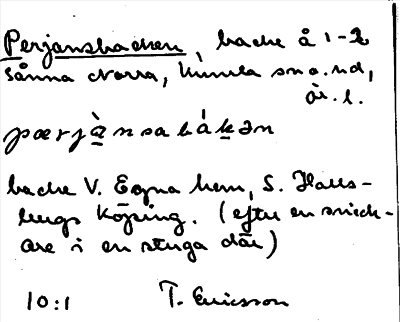 Perjansbacken, backe å 1-2
Sånna Norra, Kumla sn o. hd,
Är. l.
pærjànsabákən
backe V. Egna hem, S. Halls-
bergs köping. (efter en snick-
are i en stuga där)
10:1 T. Ericsson